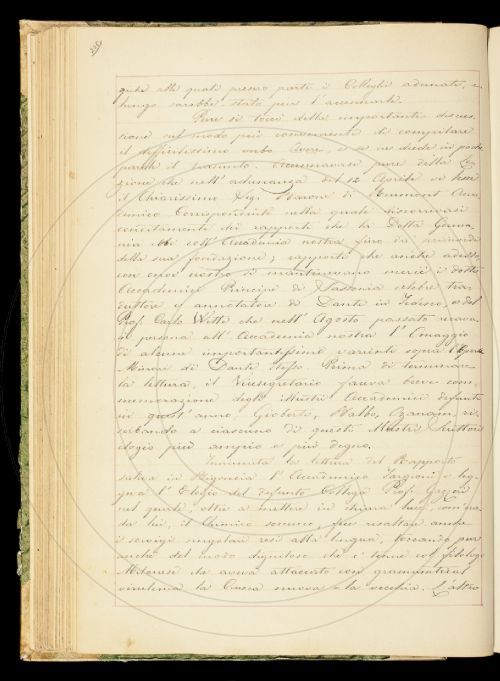 quie alle quali presero parte i Colleghi adunati, e
lungo sarebbe stato pur l'accennarle.
Pure si toccò della importante discus-
sione sul modo più conveniente di compilare
il difficilissimo verbo Avere, e se ne diede in poche
parole il Accennavasi pure della Le-
zione che nell'adunanza del 12 Aprile vi lesse
il Chiarissimo Sig. Barone di Reumont Acca-
demico Corrispondente nella quale discorrevasi
dei rapporti che la Dotta Germa-
nia ebbe coll'Accademia nostra fino da' primordi
della sua fondazione; rapporti che anche adesso
con onor nostro si mantenevano mercè i dotti
Accademici Principe di Sassonia celebre tra-
duttore e annotatore di Dante in Tedesco, e del
Prof. Carlo Witte che nell'Agosto passato recava
in persona all'Accademia nostra l'Omaggio
di alcune importantissime varianti sopra l'Opere
Minori di Dante stesso. Prima di terminare
la lettura, il Vicesegretario faceva breve com-
memorazione degli illustri Accademici defunti
in quest'anno, Gioberti, Balbo, Ozanam, ri-
serbando a ciascuno di questi Illustri Scrittori
elogio più ampio e più degno.
Terminata la lettura del Rapporto
saliva in Bigoncia l'Accademico Targioni e leg-
geva l'Elogio del defunto Collega Prof. Gazzeri
nel quale, oltre a mettere in chiara luce, com'era
da lui, il Chimico sommo, fece risaltare anche
i servigi singolari resi alla lingua, toccando pur
anche del modo dignitoso che ei tenne col filologo
Milanese che aveva attaccato con grammaticale
virulenza la Crusca nuova e la vecchia. L'altro